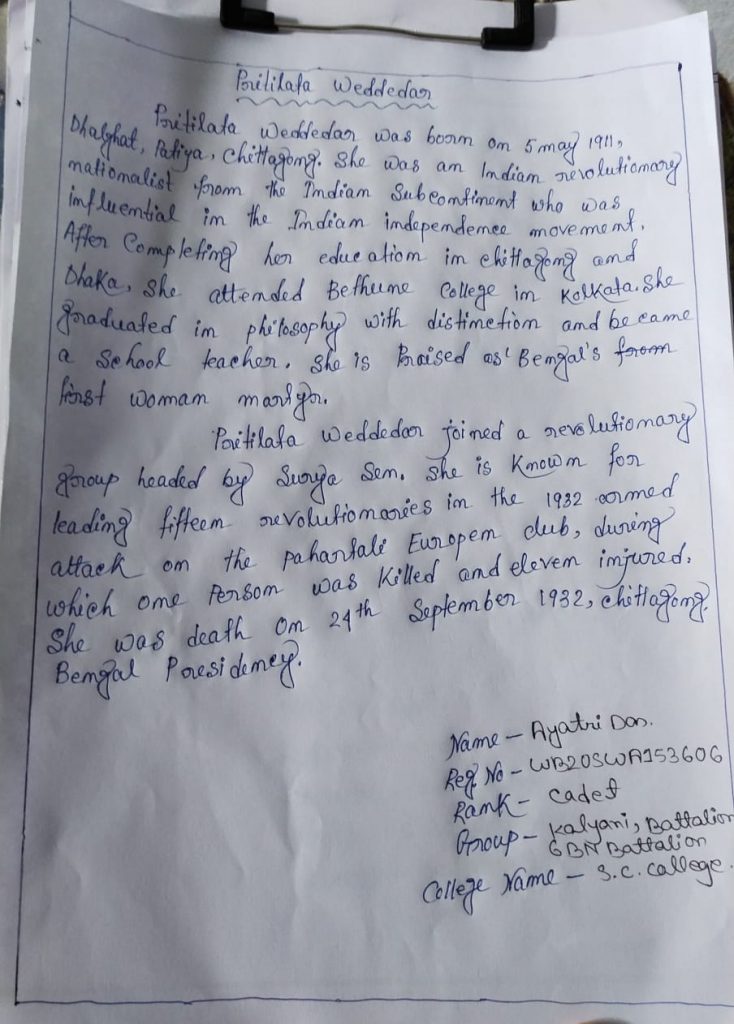 Pritilata Weddedar
Pritilata Weddedar was born on 5 may 1911,
Dhalghat, Patiya, Chittagong. She was an Indian revolutionary
nationalist from the Indian Subcontinent who was
influential in the Indian independence movement.
After Completing her education in chittagong and
Dhaka, She attended Bethune College in Kolkata. She
graduated in philosophy with distinction and became
a School teacher. She is Praised as' Bengal's from
first woman martyr.
Pritilata Weddedar joined a revolutionary
group headed by Surya Sen. She is Known for
leading fifteen revolutionaries in the 1932 armed
attack on the pahartali Europen club, during
which one Person was Killed and eleven injured.
She was death on 24th September 1932, chittagong.
Bengal Presidency.
Name - Ayatri Das.
Reg. No - WB20SWA153606
Rank - Cadet
Group - Kalyani, Battalion
6BN Battalion
College Name - S.C. College.